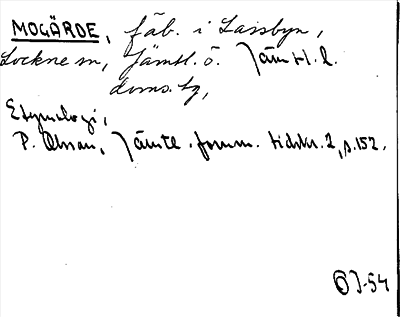 MOGÄRDE, fäb. i Lassbyn,
Lockne sn, Jämtl. ö. Jämtl. l.
doms. tg,
Etymologi,
P. Olsson, Jämtl. fornm. tidskr. 2, s. 152.
-54